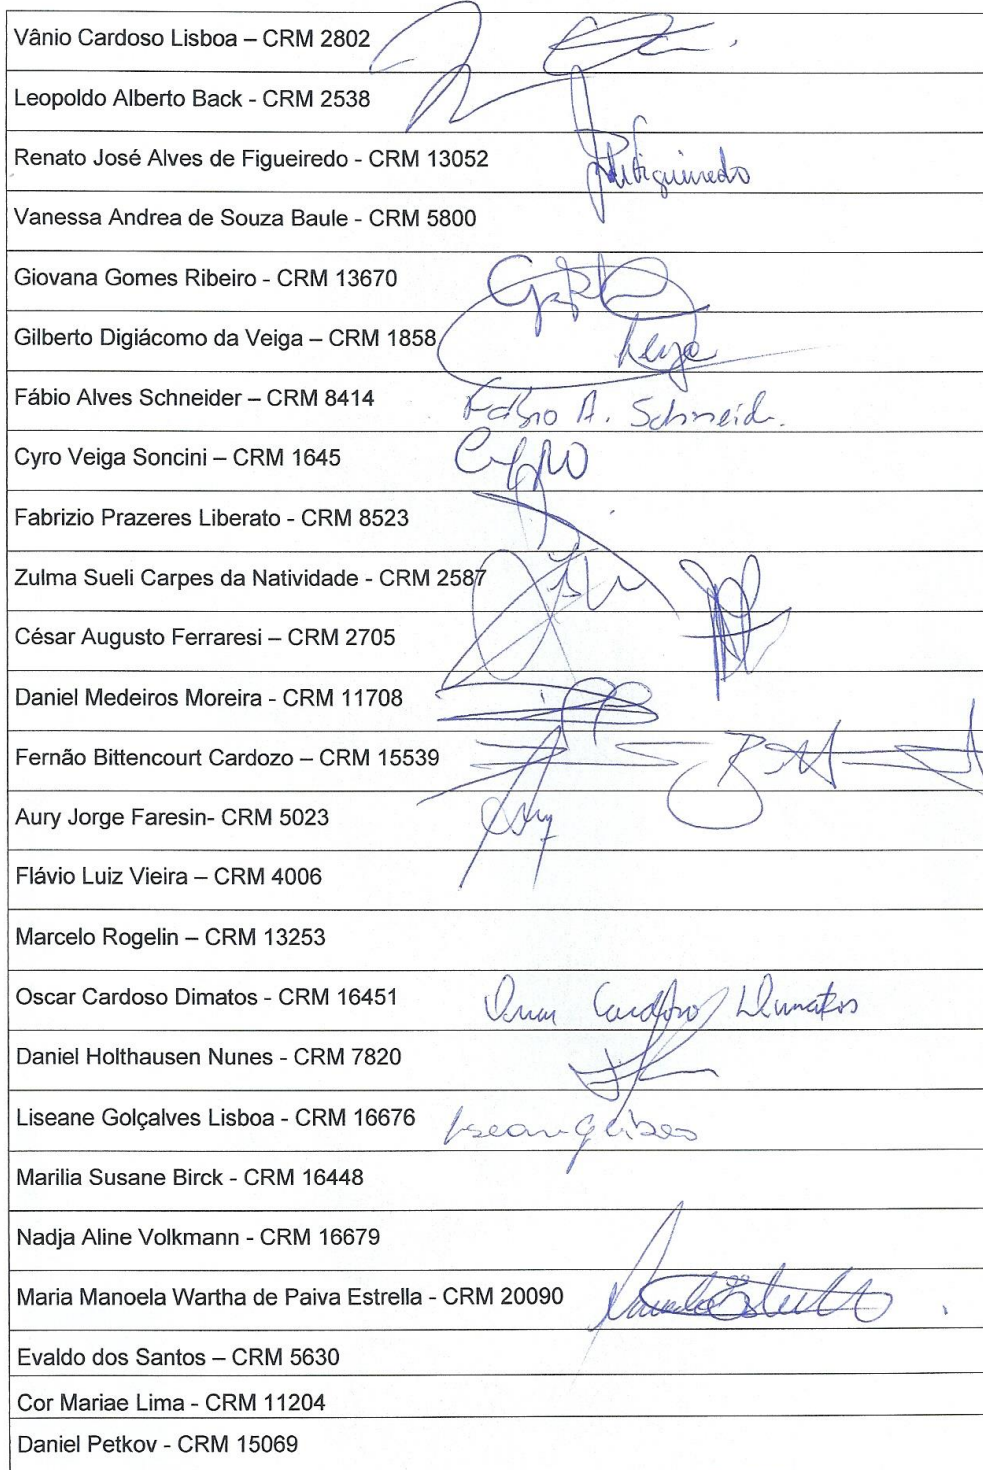 Vânio Cardoso Lisboa – CRM 2802
Leopoldo Alberto Back - CRM 2538
Renato José Alves de Figueiredo - CRM 13052
Vanessa Andrea de Souza Baule - CRM 5800
Giovana Gomes Ribeiro - CRM 13670
Gilberto Digiácomo da Veiga – CRM 1858
Fábio Alves Schneider – CRM 8414 Fabio A. Schneid.
Cyro Veiga Soncini – CRM 1645
Fabrizio Prazeres Liberato - CRM 8523
Zulma Sueli Carpes da Natividade - CRM 2587
César Augusto Ferraresi – CRM 2705
Daniel Medeiros Moreira - CRM 11708
Fernão Bittencourt Cardozo – CRM 15539
Aury Jorge Faresin- CRM 5023
Flávio Luiz Vieira – CRM 4006
Marcelo Rogelin – CRM 13253
Oscar Cardoso Dimatos - CRM 16451 Oscar Cardoso Dimatos
Daniel Holthausen Nunes - CRM 7820
Liseane Golçalves Lisboa - CRM 16676
Marilia Susane Birck - CRM 16448
Nadja Aline Volkmann - CRM 16679
Maria Manoela Wartha de Paiva Estrella - CRM 20090
Evaldo dos Santos – CRM 5630
Cor Mariae Lima - CRM 11204
Daniel Petkov - CRM 15069